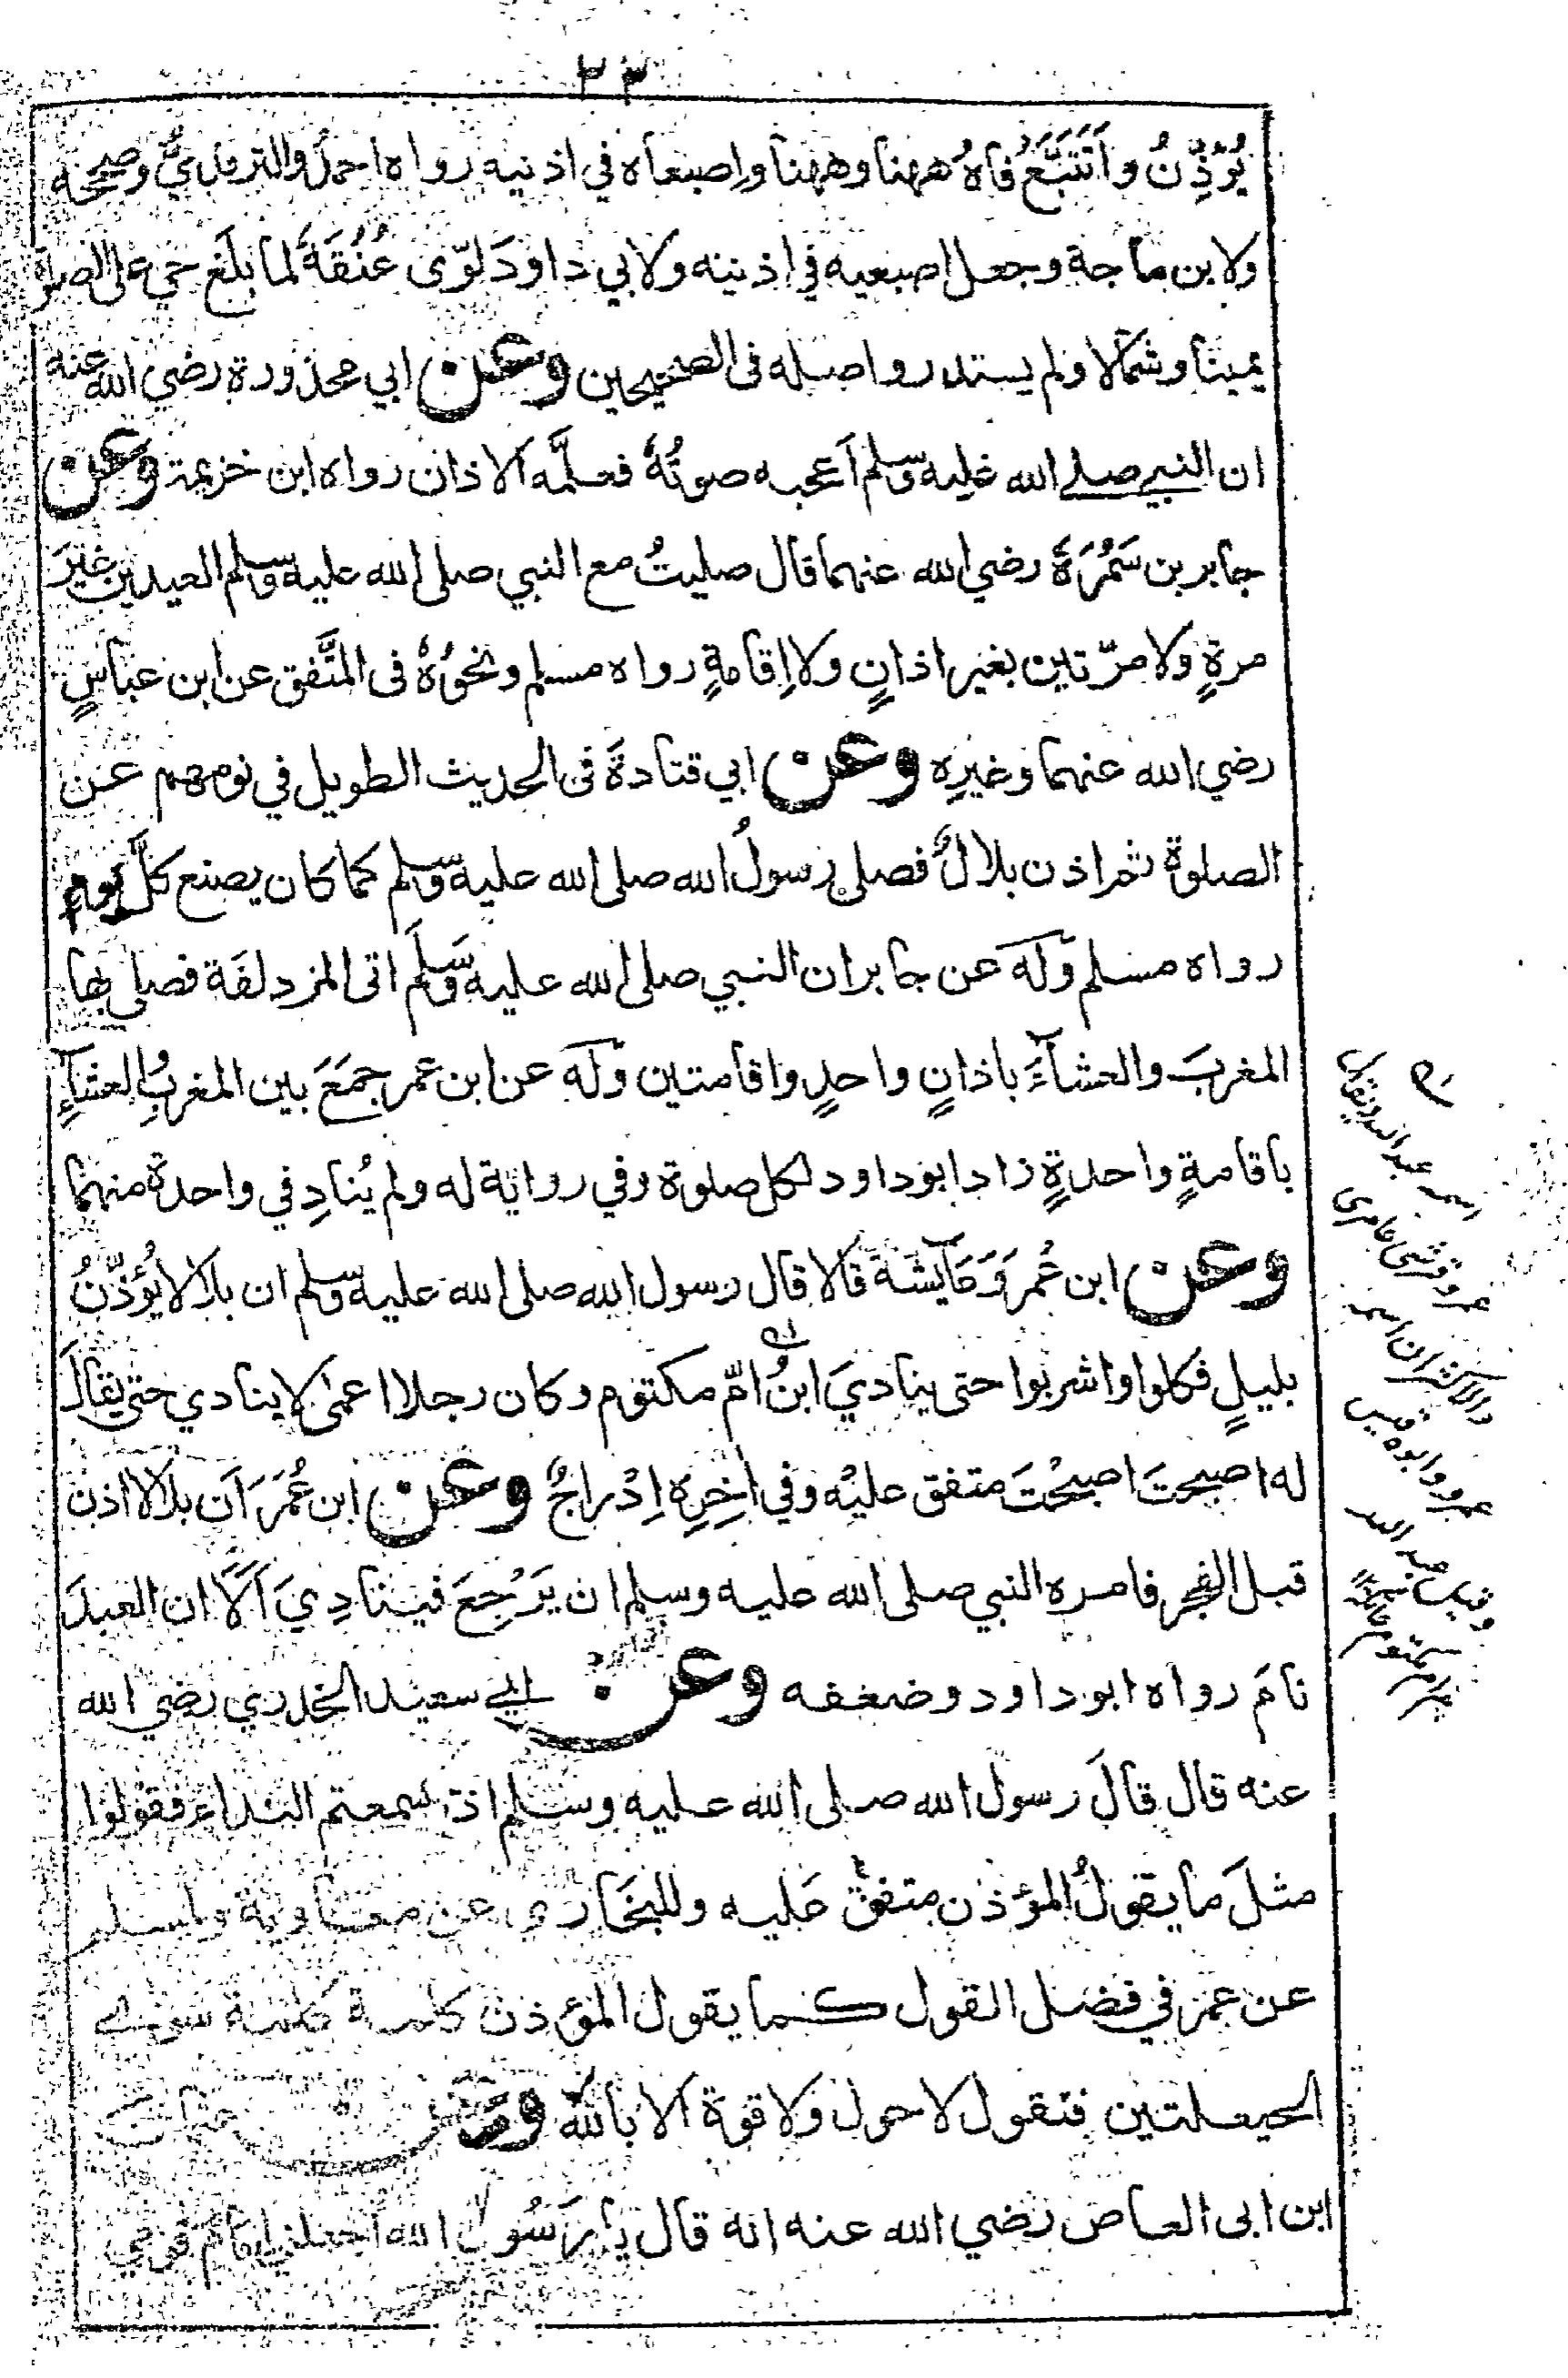 ٢٣
يُؤَذِّنُ وأَتَتَبَّعُ فَاهُ ههنا وههنا واِصبعاه في اذنيه رواه احمدُ والترمذيُّ وصححه
ولابن ماجة وجعل اصبعيه في اذنيه ولابي داودَ لوّى عُنُقَهُ لما بلَغ حي على الصلوة
يمينا وشمالا ولم يستدر واصله فى الصحيحين وعن ابي محذورة رضي الله عنه
ان النبي صلى الله عليه وسلم اَعجبه صوتُهُ فعلَّمه الاذان رواه ابن خزيمة وعن
جابر بن سَمُرَةَ رضي الله عنهما قال صليتُ مع النبي صلى الله عليه وسلم العيدين غيرَ
مرةٍ ولا مرّتين بغير اذانٍ ولا اِقامةٍ رواه مسلم ونحوُهُ فى المتَّفق عن ابن عباسٍ
رضي الله عنهما وغيرِه وعن ابي قتادةَ فى الحديث الطويل في نومهم عن
الصلوة ثم اذن بلالٌ فصلى رسولُ الله صلى الله عليه وسلم كما كان يصنع كلَّ يومٍ
رواه مسلم وله عن جابر ان النبي صلى الله عليه وَسَلَّمَ اتى المزدلفَة فصلى بها
المغربَ والعشآءَ باذانٍ واحدٍ واقامتين وله عن ابن عمر جمَعَ بين المغربِ والعشآءِ
باقامةٍ واحدةٍ زاد ابوداود لكل صلوة وفي رواية له ولم يُنادِ في واحدة منهما
وعن ابن عُمرَ وَعَايشَةَ قالا قال رسول الله صلى الله عليه وسلم ان بلالا يُؤذّنُ
بليلٍ فكلوا واشربوا حتى ينادي ابنُ امّ مكتوم وكان رجلا اعمٰى لا ينادي حتى يقالَ
له اصبحتَ اصبحْتَ متفق عليْه وفي اٰخِرِه اِدْراجٌ وعن ابن عُمَرَ اَن بلالا اذن
قبل الفجر فامره النبي صلى الله عليه وسلم ان يَرْجِعَ فينادِيَ اَلَا ان العبدَ
نامَ رواه ابوداود وضعفه وعن ابي سعيد الخدري رضي الله
عنه قال قالَ رسول الله صلى الله عليه وسلم اذا سمعتم النداء فقولوا
مثلَ ما يقولُ المؤذن متفقٌ عليه وللبخاري عن معاوية ولمسلم
عن عمر في فضل القول كما يقول المؤذن كلمة كلمة سوى
الحيعلتين فتقول لا حول ولا قوة الا بالله وعن عثمان
ابن ابى العاص رضي الله عنه انه قال يا رسُول الله اجعلني امام قومي
اسمه عبد الله ويقال
عمرو قرشي عامري
والاكثر ان اسمه
عمرو وابوه قيس